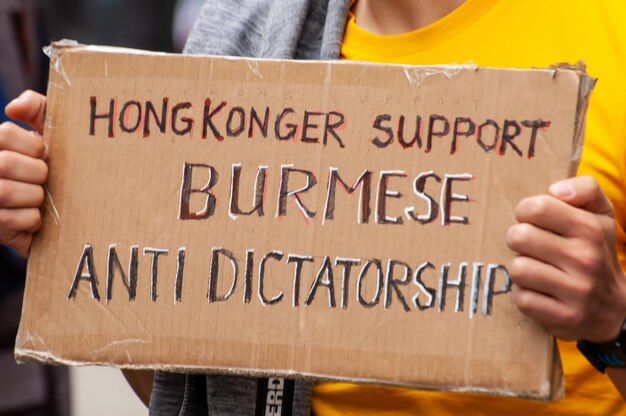 HONGKONGER SUPPORT
BURMESE
ANTI DICTATORSHIP
ERD